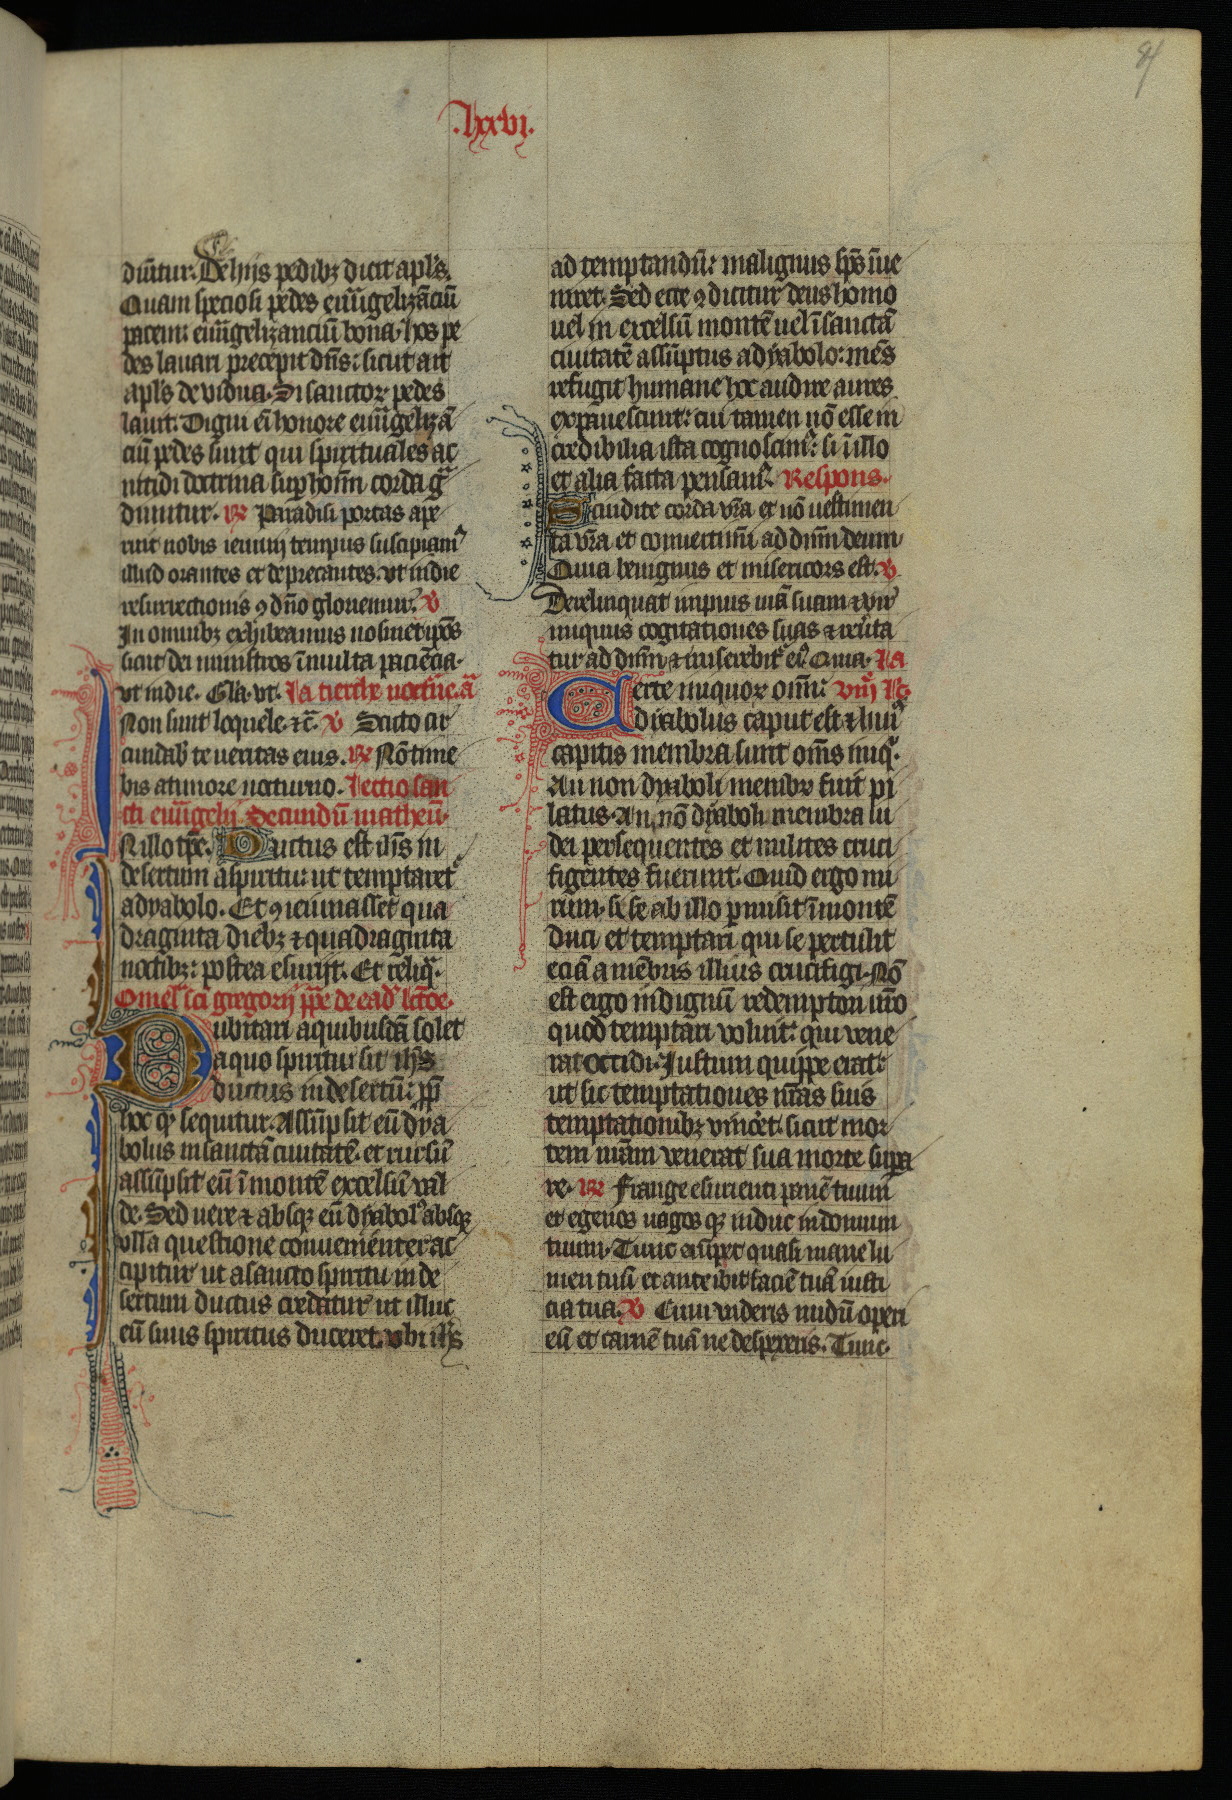 .lxxvi.
diūtur. De hijs pedibꝫ dicit apl's.
Quam speciosi pedes euūgelizāciū
pacem: euūgelizanciū bona. hos pe
des lauari precepit dn̄s: sicut ait
apl's de vidua. Si sanctoꝝ pedes
lauit. Digni em̄ honore euūgelizā
ciū pedes sunt qui spirituales ac
nitidi doctrina sup hoīm corda
diuntur. ℟ Paradisi portas ape
ruit nobis ieiunij tempus suscipiam᷒
illud orantes et deprecantes. vt in die
resurrectionis ꝯ dn̄o gloriemur. ℣
In omnibꝫ exhibeamus nosmetipōs
sicut dei ministros ī multa paciēcia.
vt in die. Gl'a. vt. In tercio noct̄ne. ā
Non sunt loquele. ⁊c̄. ℣ Scuto cir
cumdab̄ te veritas eius. ℟ Nō time
bis a timore nocturno. Lectio san
cti euūgelij secundū matheū.
IN illo tp̄e. Ductus est ih̄s in
desertum a spiritu: ut temptaret᷒
a dyabolo. Et ꝯ ieiunasset qua
draginta diebꝫ ⁊ quadraginta
noctibꝫ: postea esurijt. Et reliq̄.
Omel' sc̄i gregorij pp̄e de ead̄ lc̄tōe.
Dubitari a quibusdā solet
a quo spiritu sit ih̄s
ductus in desertū: pp̄
hoc qꝫ sequitur. Assūpsit eū dya
bolus in sanctā ciuitatē. et rursū
assūpsit eū ī montē excelsū val
de. Sed uere ⁊ absqꝫ eū dyabol᷒ absqꝫ
vlla questione conuenienter ac
cipitur ut a sancto spiritu in de
sertum ductus credatur ut illuc
eū suus spiritus duceret. vbi ih̄s
ad temptandū: malignus sp̄s īue
niret. Sed ecce ꝯ dicitur deus homo
uel in excelsū montē uel ī sanctā
ciuitatē assūptus a dyabolo: mēs
refugit humane hoc audire aures
expauescunt: cui tamen nō esse in
credibilia ista cognoscim᷒: si ī illo
et alia facta pensam᷒. Respons.
Scindite corda vr̄a et nō vestimen
ta vr̄a et conuertimī ad dn̄m deum
Quia benignus et misericors est. ℣
Derelinquat impius uiā suam ⁊ vir
iniquus cogitationes suas ⁊ reūta
tur ad dn̄m ⁊ miserebit᷒ ei᷒ Quia.
Certe iniquoꝝ omī: viij lc̄.
dyabolus caput est ⁊ hui᷒
capitis membra sunt om̄s iniq̄.
An non dyaboli membr̄ fuit pi
latus. An nō dyaboli membra iu
dei persequentes et milites cruci
figentes fuerunt. Quid ergo mi
rum. si se ab illo p̄misit ī montē
duci et temptari qui se pertulit
eciā a mēbris illius crucifigi. Nō
est ergo indignū redemptori nr̄o
quod temptari voluit: qui vene
rat occidi. Justum quippe erat:
ut sic temptationes nr̄as suis
temptationibꝫ vinc̄et. sicut mor
tem nr̄am venerat sua morte supa
re. ℟ Frange esurienti panē tuum
et egenos uagos qꝫ induc in domum
tuum. Tunc erūpet quasi mane lu
men tuū et anteibit faciē tuā iusti
cia tua. ℣ Cum videris nudū operi
eū et carnē tuā ne despexeris. Tunc.